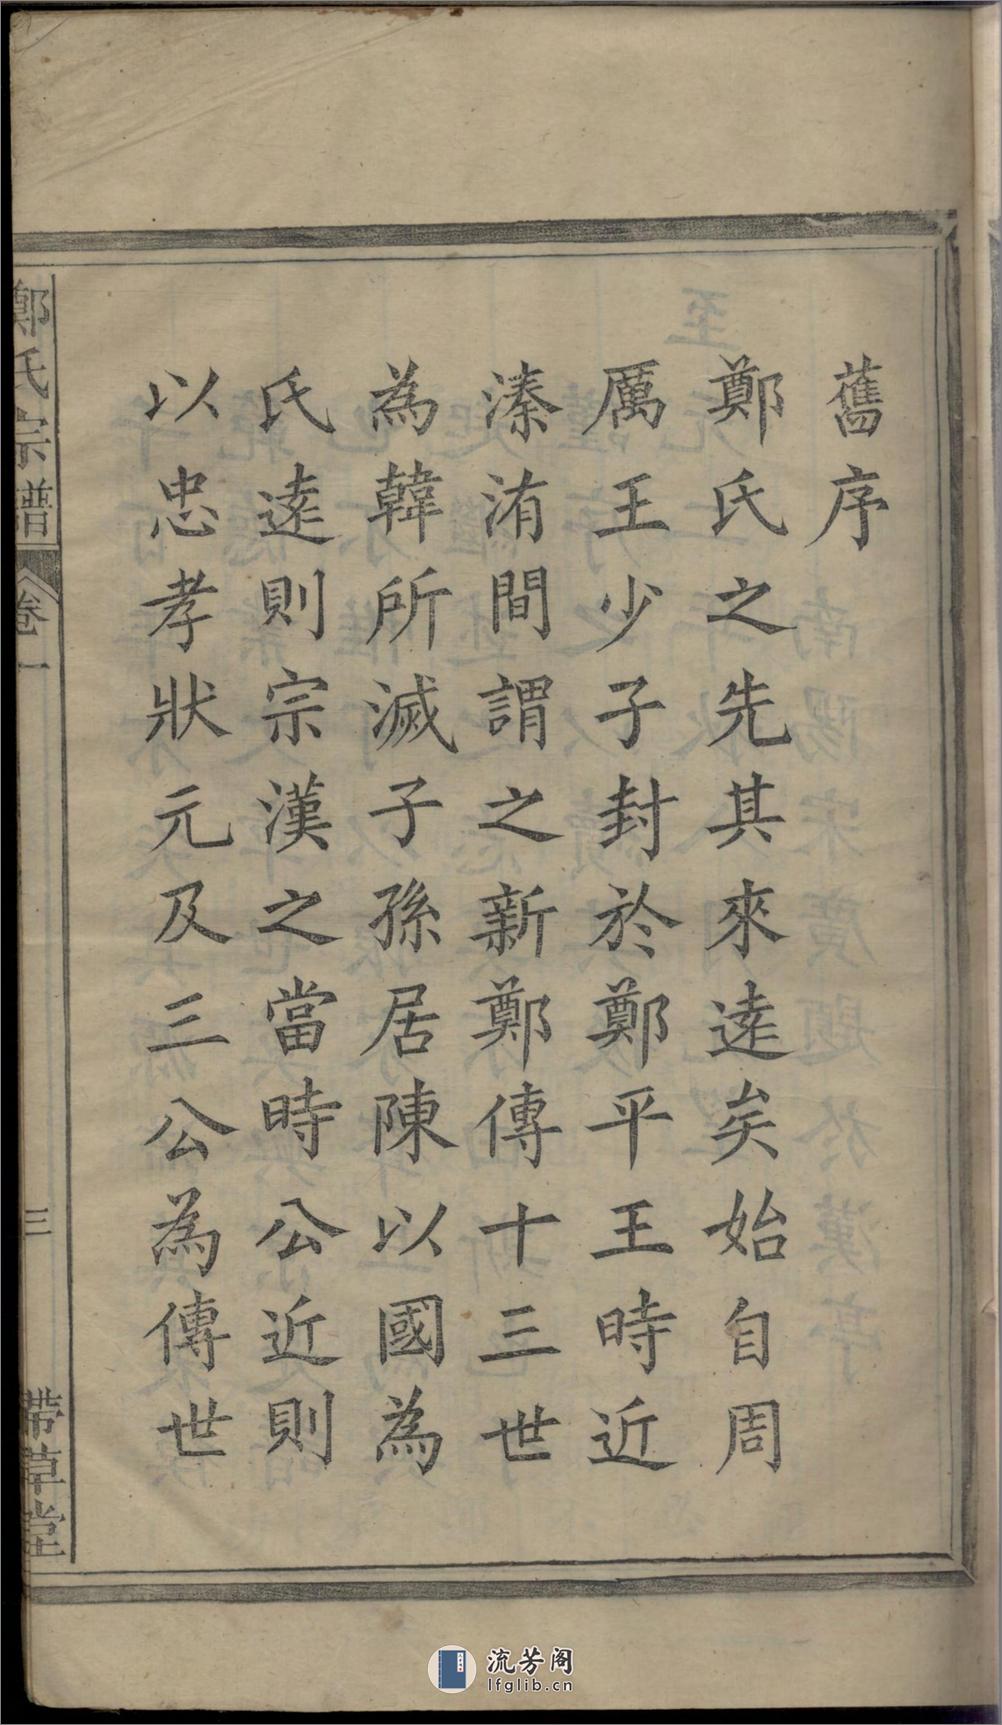 舊序
鄭氏之先其來逺矣始自周
厲王少子封於鄭平王時近
溱洧間謂之新鄭傳十三世
為韓所滅子孫居陳以國為
氏逺則宗漢之當時公近則
以忠孝狀元及三公為傳世
鄭氏宗譜
卷一
三
帶草堂
流芳阁
lfglib.cn